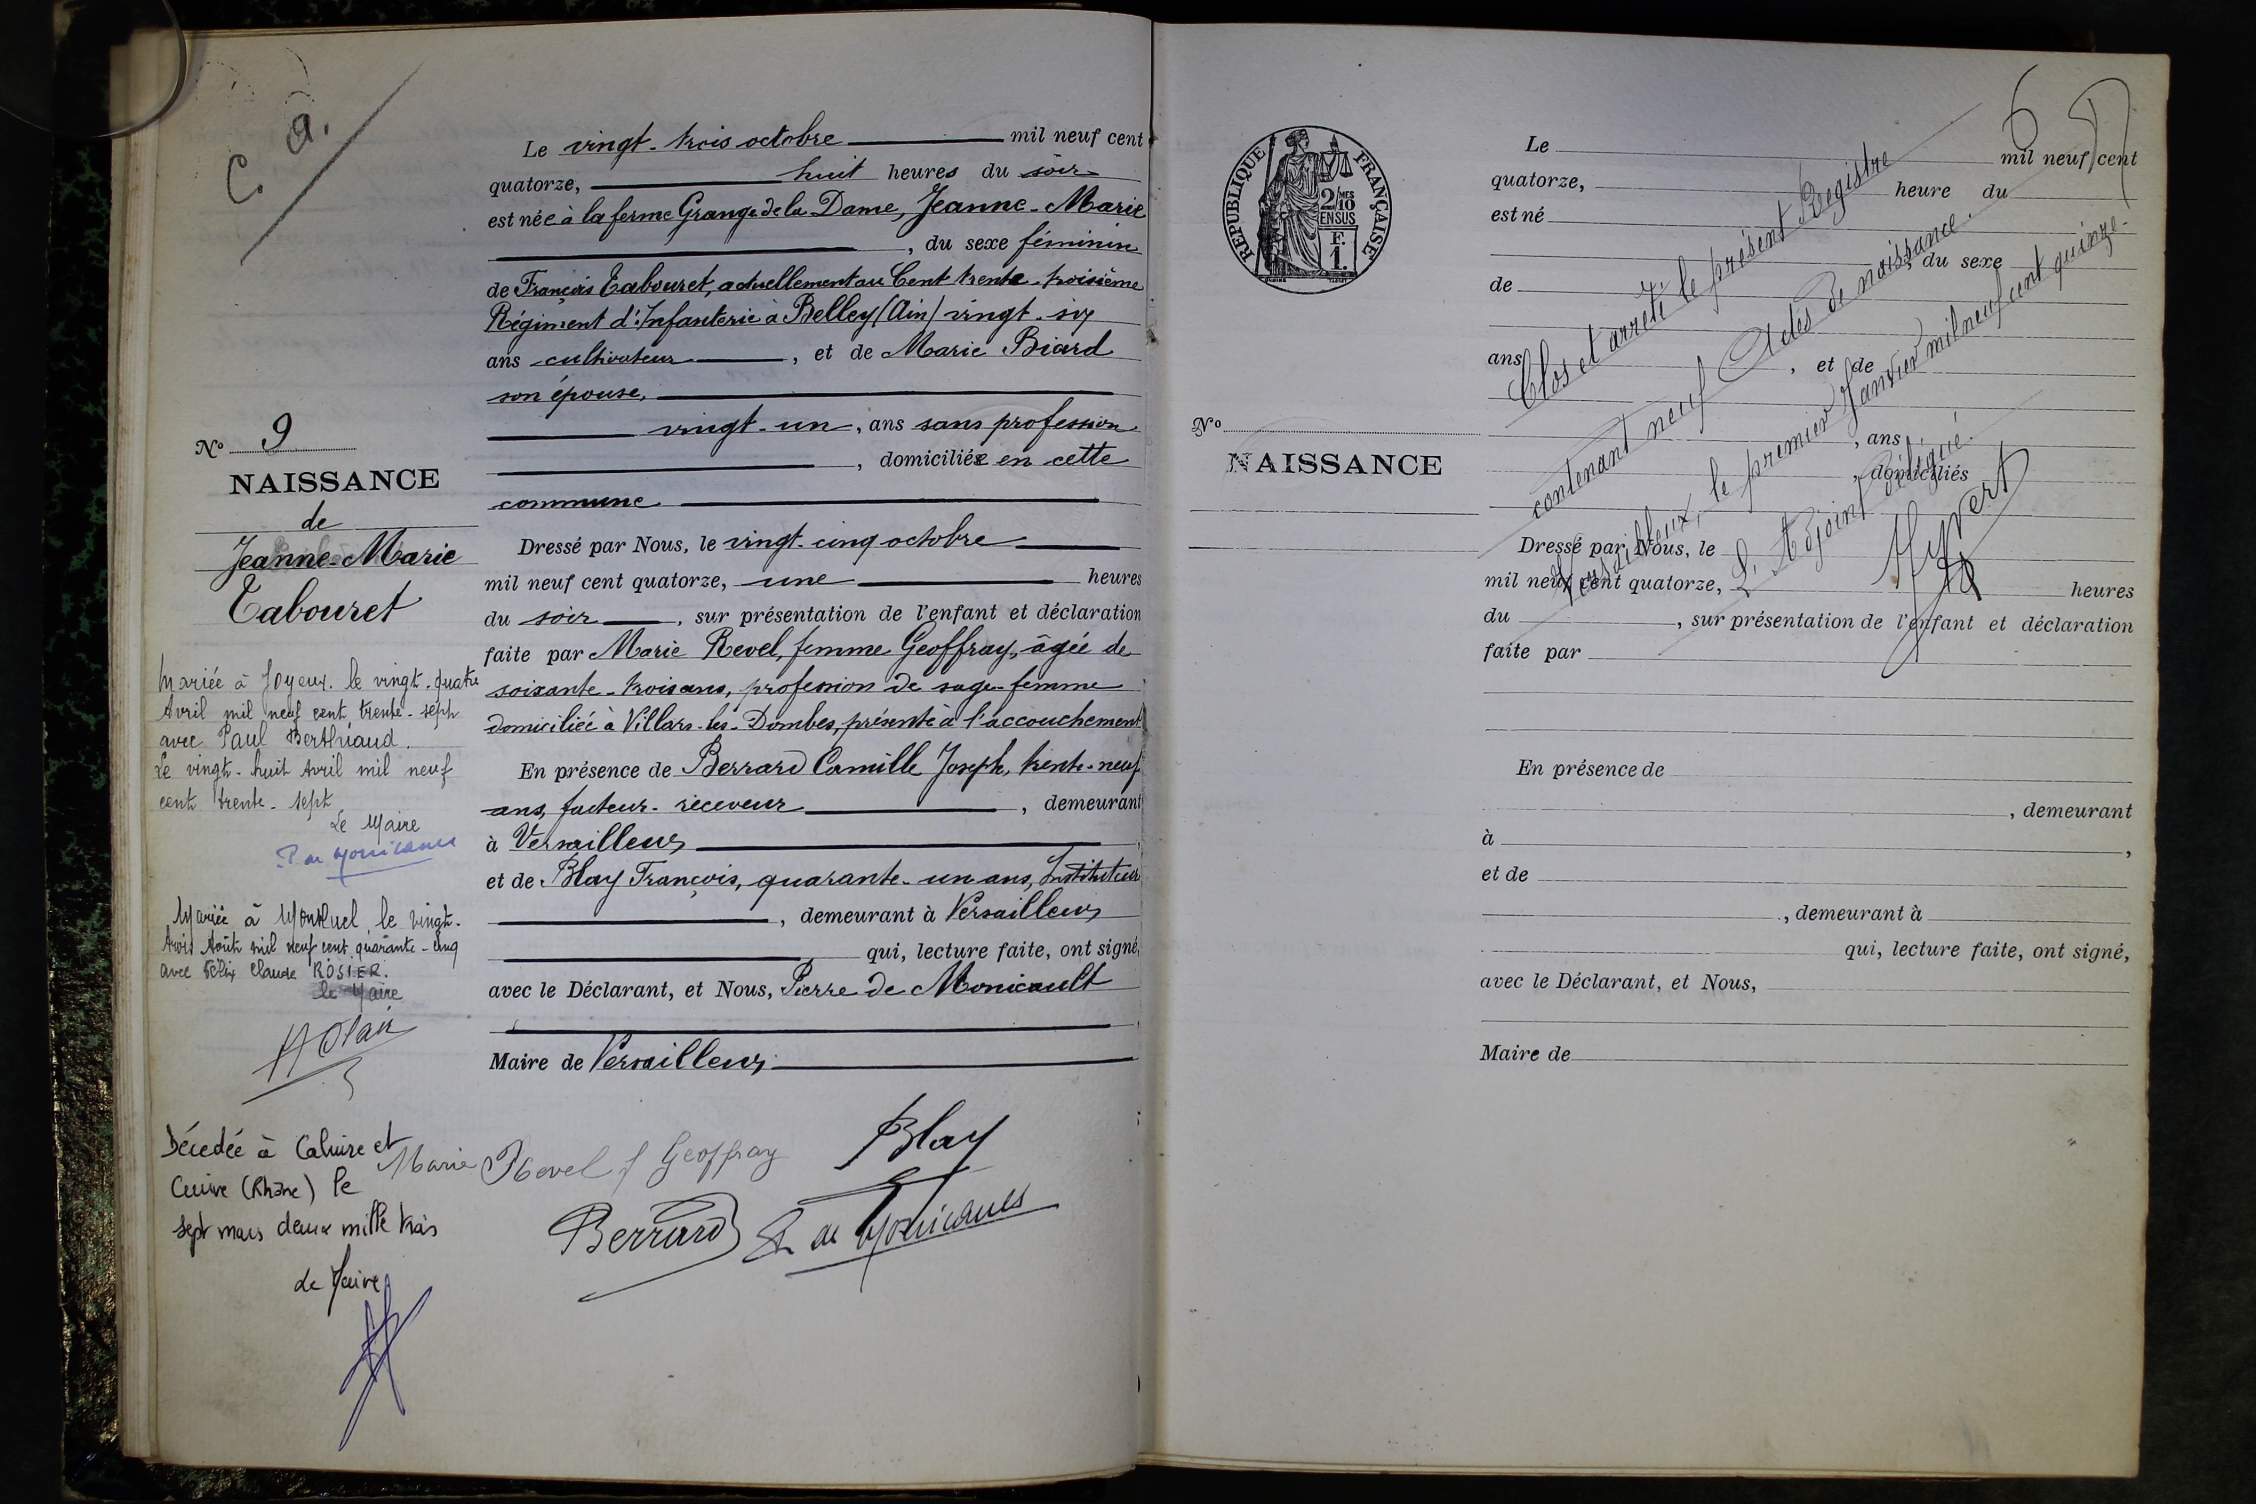 C. a.
N° 9
NAISSANCE
de
Jeanne-Marie
Tabouret
Mariée à Joyeux le vingt-quatre
Avril mil neuf cent trente-sept
avec Paul Berthuaud.
Le vingt-huit Avril mil neuf
cent trente-sept
Le Maire
P. de Monicault
Mariée à Montluel, le vingt-
trois Août mil neuf cent quarante-cinq
avec Félix Claude ROSIER.
le Maire
Décédée à Caluire et
Cuire (Rhône) le
sept mars deux mille trois
Le Maire
Le vingt-trois octobre mil neuf cent
quatorze, huit heures du soir
est née à la ferme Grange de la Dame, Jeanne-Marie
, du sexe féminin
de François Tabouret, actuellement au Cent trente-troisième
Régiment d'Infanterie à Belley (Ain) vingt-six
ans cultivateur, et de Marie Biard
son épouse,
vingt-un, ans sans profession
, domiciliés en cette
commune
Dressé par Nous, le vingt-cinq octobre
mil neuf cent quatorze, une heures
du soir, sur présentation de l'enfant et déclaration
faite par Marie Revel, femme Geoffray, âgée de
soixante-trois ans, profession de sage-femme
domiciliée à Villars-les-Dombes, présente à l'accouchement
En présence de Berrard Camille Joseph, trente-neuf
ans, facteur-receveur, demeurant
à Versailleux,
et de Blay François, quarante-un ans, Instituteur
, demeurant à Versailleux
qui, lecture faite, ont signé,
avec le Déclarant, et Nous, Pierre de Monicault
Maire de Versailleux
Marie Revel f Geoffray
Blay
Berrard
P. de Monicault
RÉPUBLIQUE FRANÇAISE
2/10 MES
EN SUS
F.
1.
N°
NAISSANCE
6
Le mil neuf cent
quatorze, heure du
est né
, du sexe
de
ans, et de
, ans
, domiciliés
Dressé par Nous, le
mil neuf cent quatorze, heures
du, sur présentation de l'enfant et déclaration
faite par
En présence de
, demeurant
à,
et de
, demeurant à
qui, lecture faite, ont signé,
avec le Déclarant, et Nous,
Maire de
Clos et arrêté le présent Registre
contenant neuf Actes de naissance.
Versailleux, le premier Janvier mil neuf cent quinze.
L'Adjoint délégué.
Hyvert